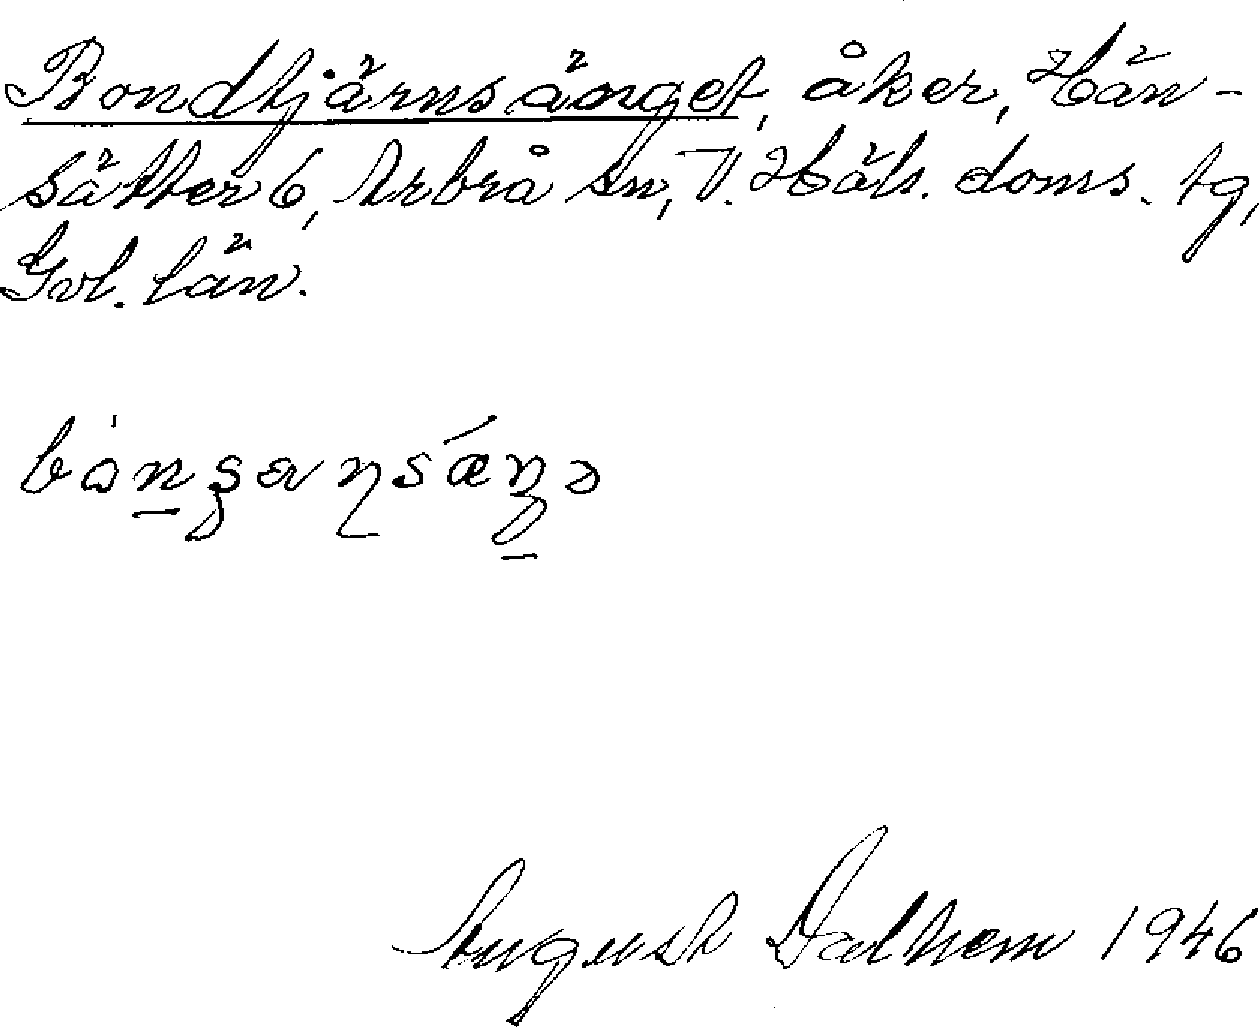 Bondtjärnsänget, åker, Hän-
sätter 6, Arbrå sn, V. Häls. doms. tg,
Gvl. län.
August Dalhem 1946